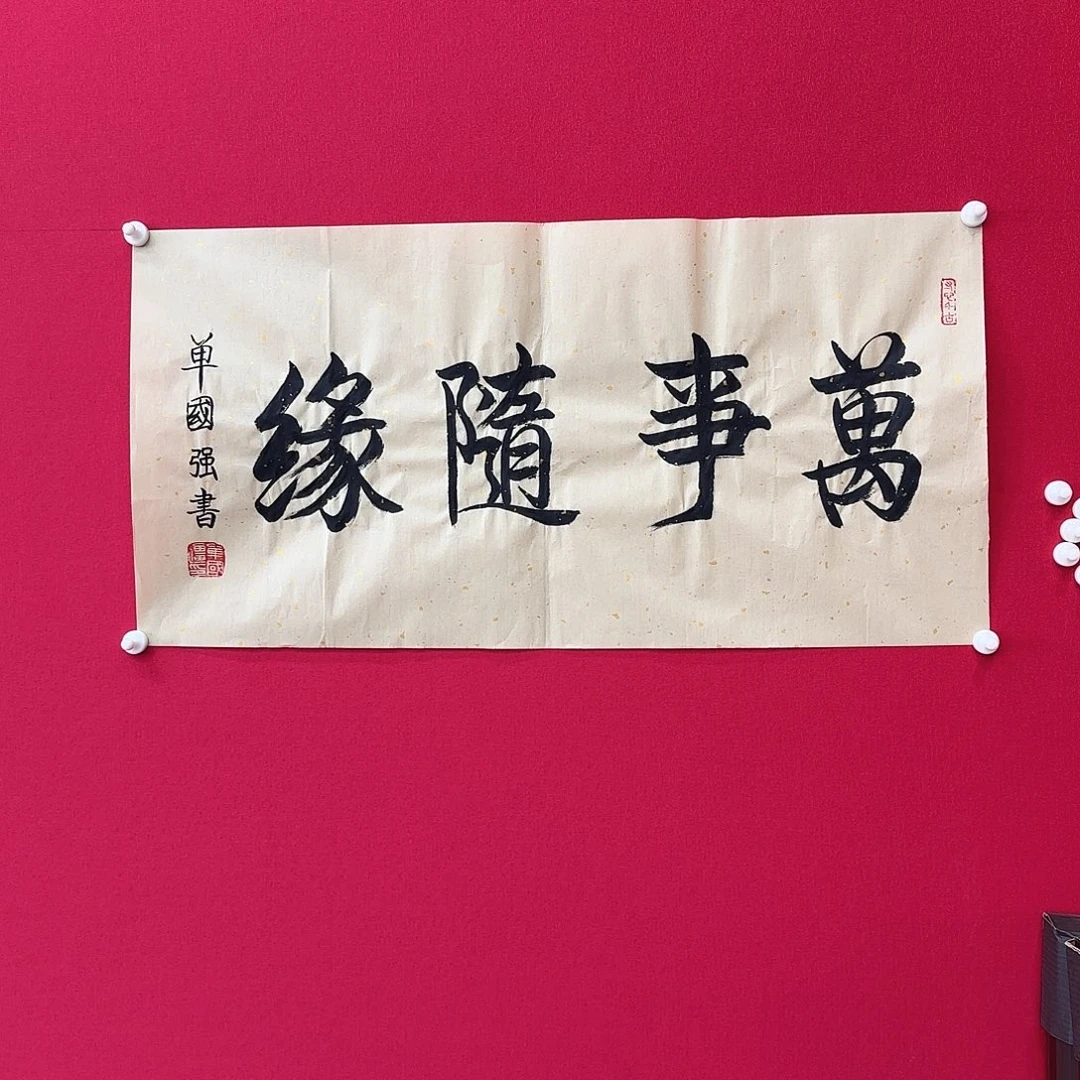 萬事隨緣
单國强書